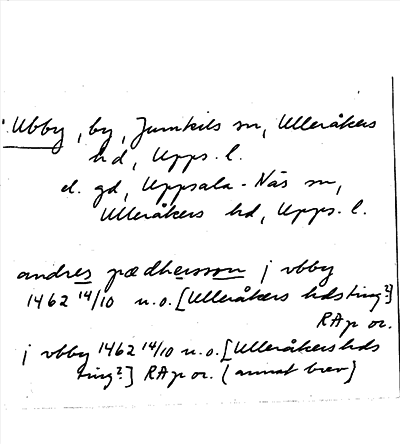 Ubby, by, Jumkils sn, Ulleråkers
hd, Upps. l.
el. gd, Uppsala-Näs sn,
Ulleråkers hd, Upps. l.
andres pædhersson j vbby
1462 14/10 u.o. [Ulleråkers hdsting?]
RAp or.
j vbby 1462 14/10 u.o. [Ulleråkers hds
ting?] RAp or. (annat brev)